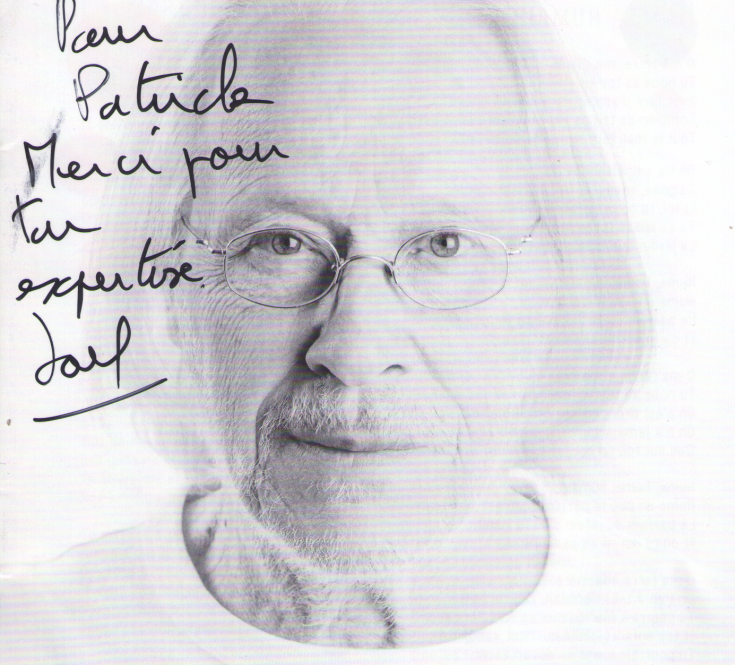 Pour
Patrick
Merci pour
ton
expertise.
Joël